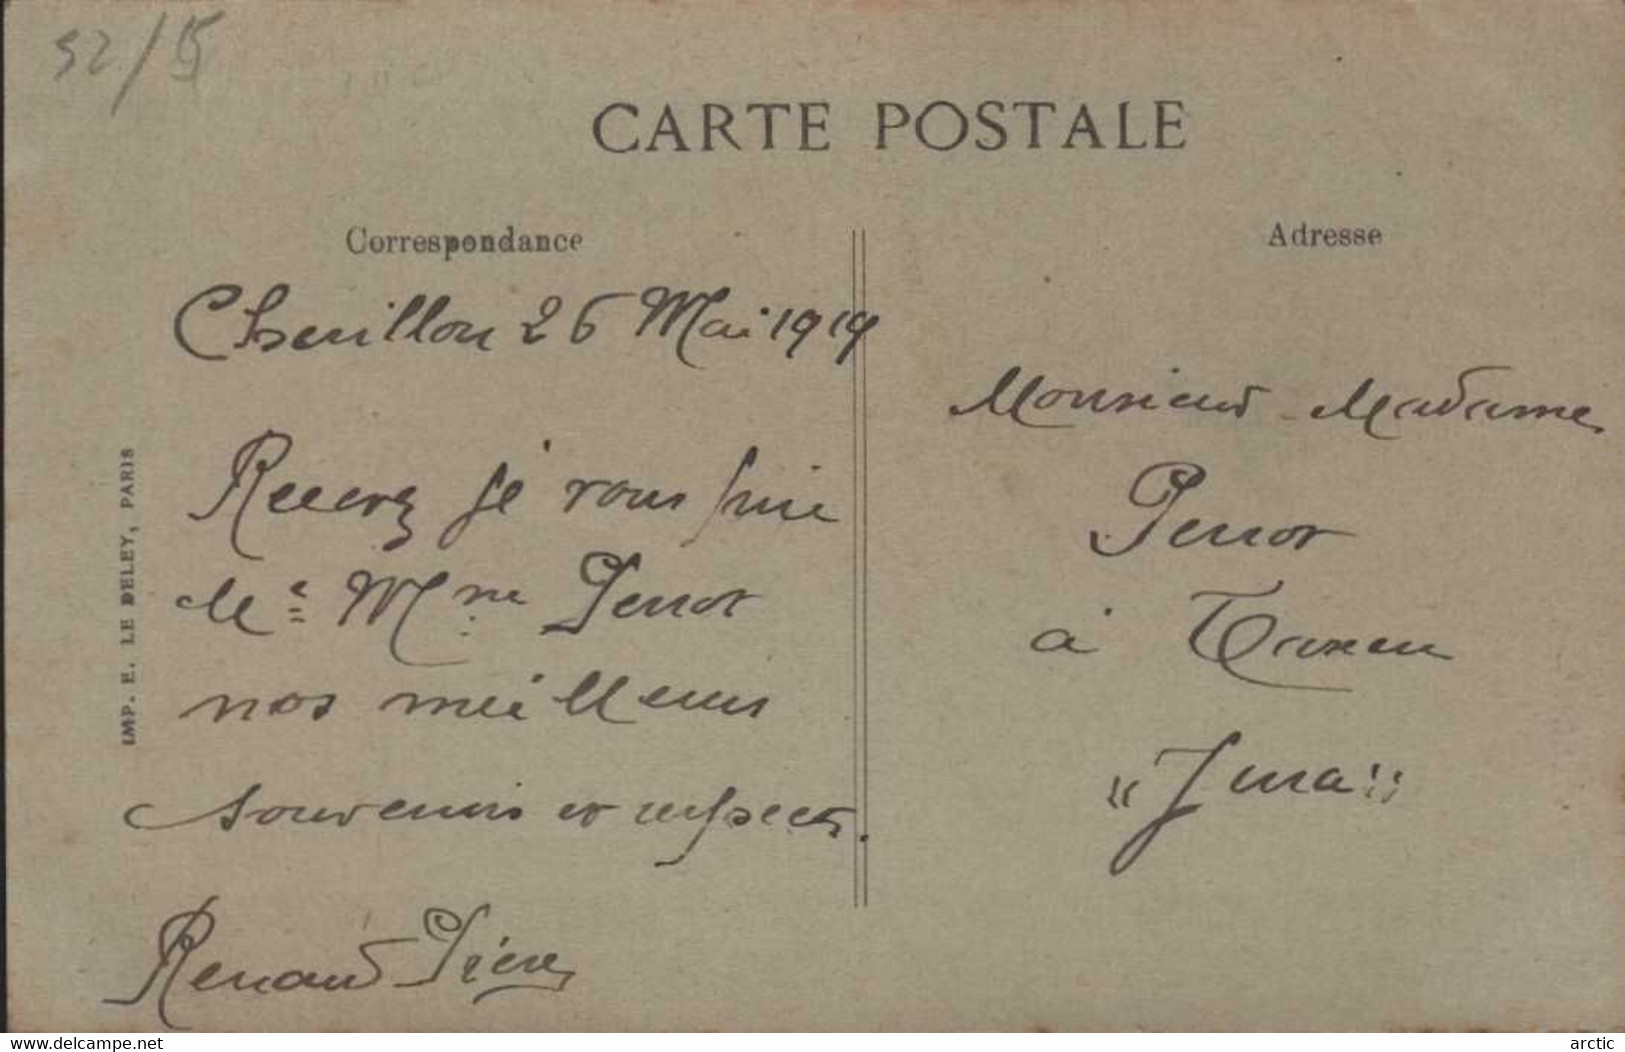 52/15
CARTE POSTALE
Correspondance
Adresse
Chevillon 26 Mai 1919
Recevez je vous prie
Mr Mme Perrot
nos meilleurs
souvenirs et respects.
Renaud
Monsieur Madame
Perrot
à
"Jura"
IMP. E. LE DELEY, PARIS
www.delcampe.net
arctic